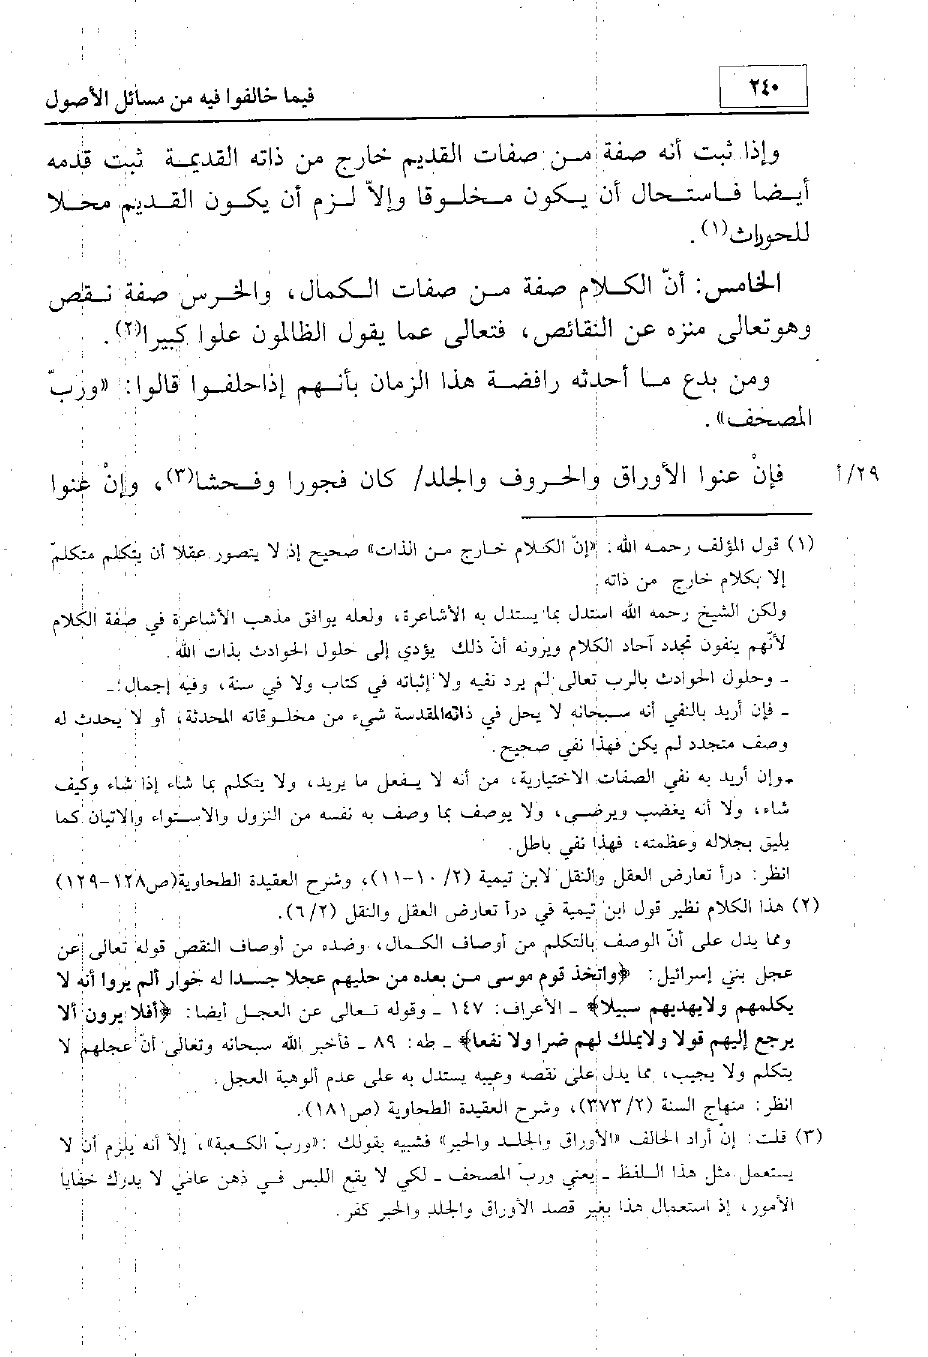 ٢٤٠
فيما خالفوا فيه من مسائل الأصول
وإذا ثبت أنه صفة من صفات القديم خارج من ذاته القديمة ثبت قدمه
أيضا فاستحال أن يكون مخلوقا وإلاّ لزم أن يكون القديم محلا
للحوراث(١).
الخامس: أنّ الكلام صفة من صفات الكمال، والخرس صفة نقص
وهوتعالى منزه عن النقائص، فتعالى عما يقول الظالمون علوا كبيرا(٢).
ومن بدع ما أحدثه رافضة هذا الزمان بأنهم إذاحلفوا قالوا: «وربّ
المصحف».
٢٩/أ
فإنْ عنوا الأوراق والحروف والجلد/ كان فجورا وفحشا(٣)، وإنْ عنوا
(١) قول المؤلف رحمه الله: «إنّ الكلام خارج من الذات» صحيح إذ لا يتصور عقلا أن يتكلم متكلمّ
إلا بكلام خارج من ذاته.
ولكن الشيخ رحمه الله استدل بما يستدل به الأشاعرة، ولعله يوافق مذهب الأشاعرة في صفة الكلام
لأنّهم ينفون تجدد آحاد الكلام ويرونه أنّ ذلك يؤدي إلى حلول الحوادث بذات الله.
ـ وحلول الحوادث بالرب تعالى لم يرد نفيه ولا إثباته في كتاب ولا في سنة، وفيه إجمال:ـ
ـ فإن أريد بالنفي أنه سبحانه لا يحل في ذاته المقدسة شيء من مخلوقاته المحدثة، أو لا يحدث له
وصف متجدد لم يكن فهذا نفي صحيح.
ـ وإن أريد به نفي الصفات الاختيارية، من أنه لا يفعل ما يريد، ولا يتكلم بما شاء إذا شاء وكيف
شاء، ولا أنه يغضب ويرضى، ولا يوصف بما وصف به نفسه من النزول والاستواء والاتيان كما
يليق بجلاله وعظمته، فهذا نفي باطل.
انظر: درأ تعارض العقل والنقل لابن تيمية (٢/ ١٠-١١)، وشرح العقيدة الطحاوية(ص١٢٨-١٢٩)
(٢) هذا الكلام نظير قول ابن تيمية في درأ تعارض العقل والنقل (٦/٢).
ومما يدل على أنّ الوصف بالتكلم من أوصاف الكمال، وضده من أوصاف النقص قوله تعالى عن
عجل بني إسرائيل: ﴿واتخذ قوم موسى من بعده من حليهم عجلا جسدا له خوار ألم يروا أنه لا
يكلمهم ولايهديهم سبيلا﴾ ـ الأعراف: ١٤٧ ـ وقوله تعالى عن العجل أيضا: ﴿أفلا يرون ألا
يرجع إليهم قولا ولايملك لهم ضرا ولا نفعا﴾ ـ طه: ٨٩ ـ فأخبر الله سبحانه وتعالى أنّ عجلهم لا
يتكلم ولا يجيب، مما يدل على نقصه وعيبه يستدل به على عدم ألوهية العجل.
انظر: منهاج السنة (٣٧٣/٢)، وشرح العقيدة الطحاوية (ص١٨١).
(٣) قلت: إنّ أراد الحالف «الأوراق والجلد والحبر» فشبيه بقولك :«وربّ الكعبة»، إلاّ أنه يلزم أن لا
يستعمل مثل هذا اللفظ ـ يعني وربّ المصحف ـ لكي لا يقع اللبس في ذهن عامّي لا يدرك خفايا
الأمور، إذ استعمال هذا بغير قصد الأوراق والجلد والحبر كفر.